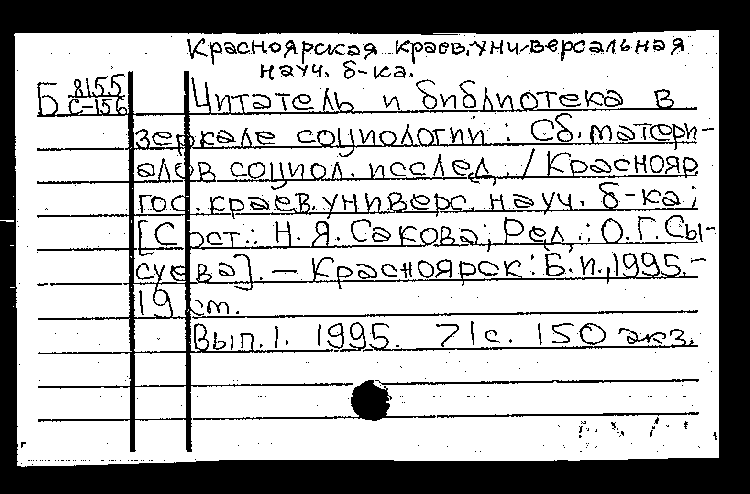 Красноярская краев. универсальная
науч. б-ка.
Б 8155
С-156
Читатель и библиотека в
зеркале социологии: Сб. матери-
алов социол. исслед. / Краснояр.
гос. краев. универс. науч. б-ка;
[Сост.: Н. Я. Сакова; Ред.: О. Г. Сы-
суева]. — Красноярск: Б. и., 1995.-
19 см.
Вып. 1. 1995. 71с. 150 экз.